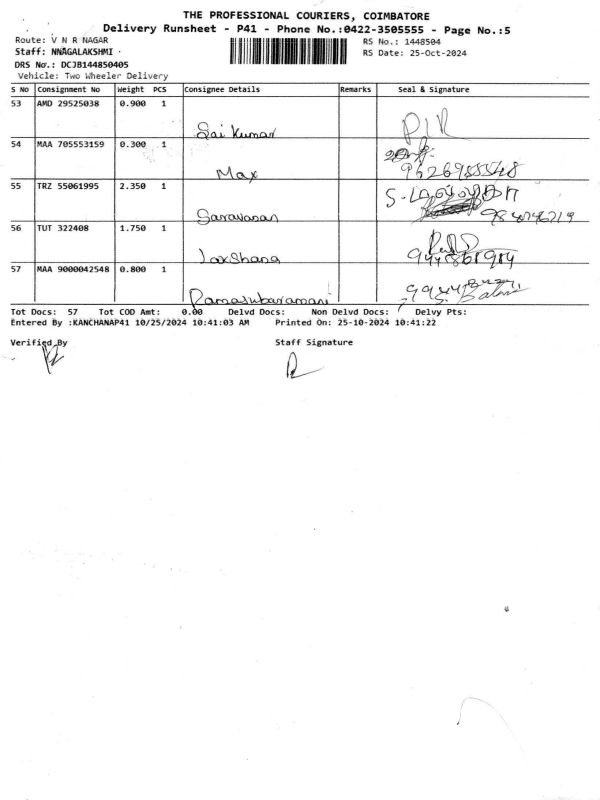 THE PROFESSIONAL COURIERS, COIMBATORE
Delivery Runsheet - P41 - Phone No.:0422-3505555 - Page No.:5
Route: V N R NAGAR RS No.: 1448504
Staff: NNAGALAKSHMI RS Date: 25-Oct-2024
DRS No.: DCJB144850405
Vehicle: Two Wheeler Delivery
S No Consignment No Weight PCS Consignee Details Remarks Seal & Signature
53 AMD 29525038 0.900 1
Sai Kumar
54 MAA 705553159 0.300 1
Max
55 TRZ 55061995 2.350 1
Saravanan
56 TUT 322408 1.750 1
Laxshana
57 MAA 9000042548 0.800 1
Ramasubaramani
Tot Docs: 57 Tot COD Amt: 0.00 Delvd Docs: Non Delvd Docs: Delvy Pts:
Entered By :KANCHANAP41 10/25/2024 10:41:03 AM Printed On: 25-10-2024 10:41:22
Verified By Staff Signature